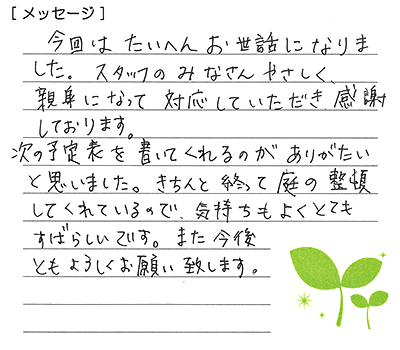 [メッセージ]
今回は たいへん お世話になりま
した。スタッフの みなさん やさしく、
親身になって 対応していただき、感謝
しております。
次の予定表を書いてくれるのが ありがたい
と思いました。きちんと終って庭の整頓
してくれているので、気持ちもよくとても
すばらしいです。また今後
ともよろしくお願い致します。